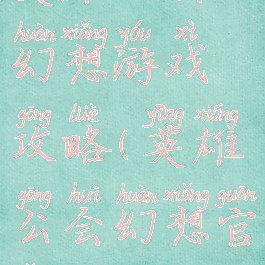 huàn xiǎng yóu xì
幻想游戏
gōng lüè yīng xióng
攻略(英雄
gōng huì huàn xiǎng guān
公会幻想官